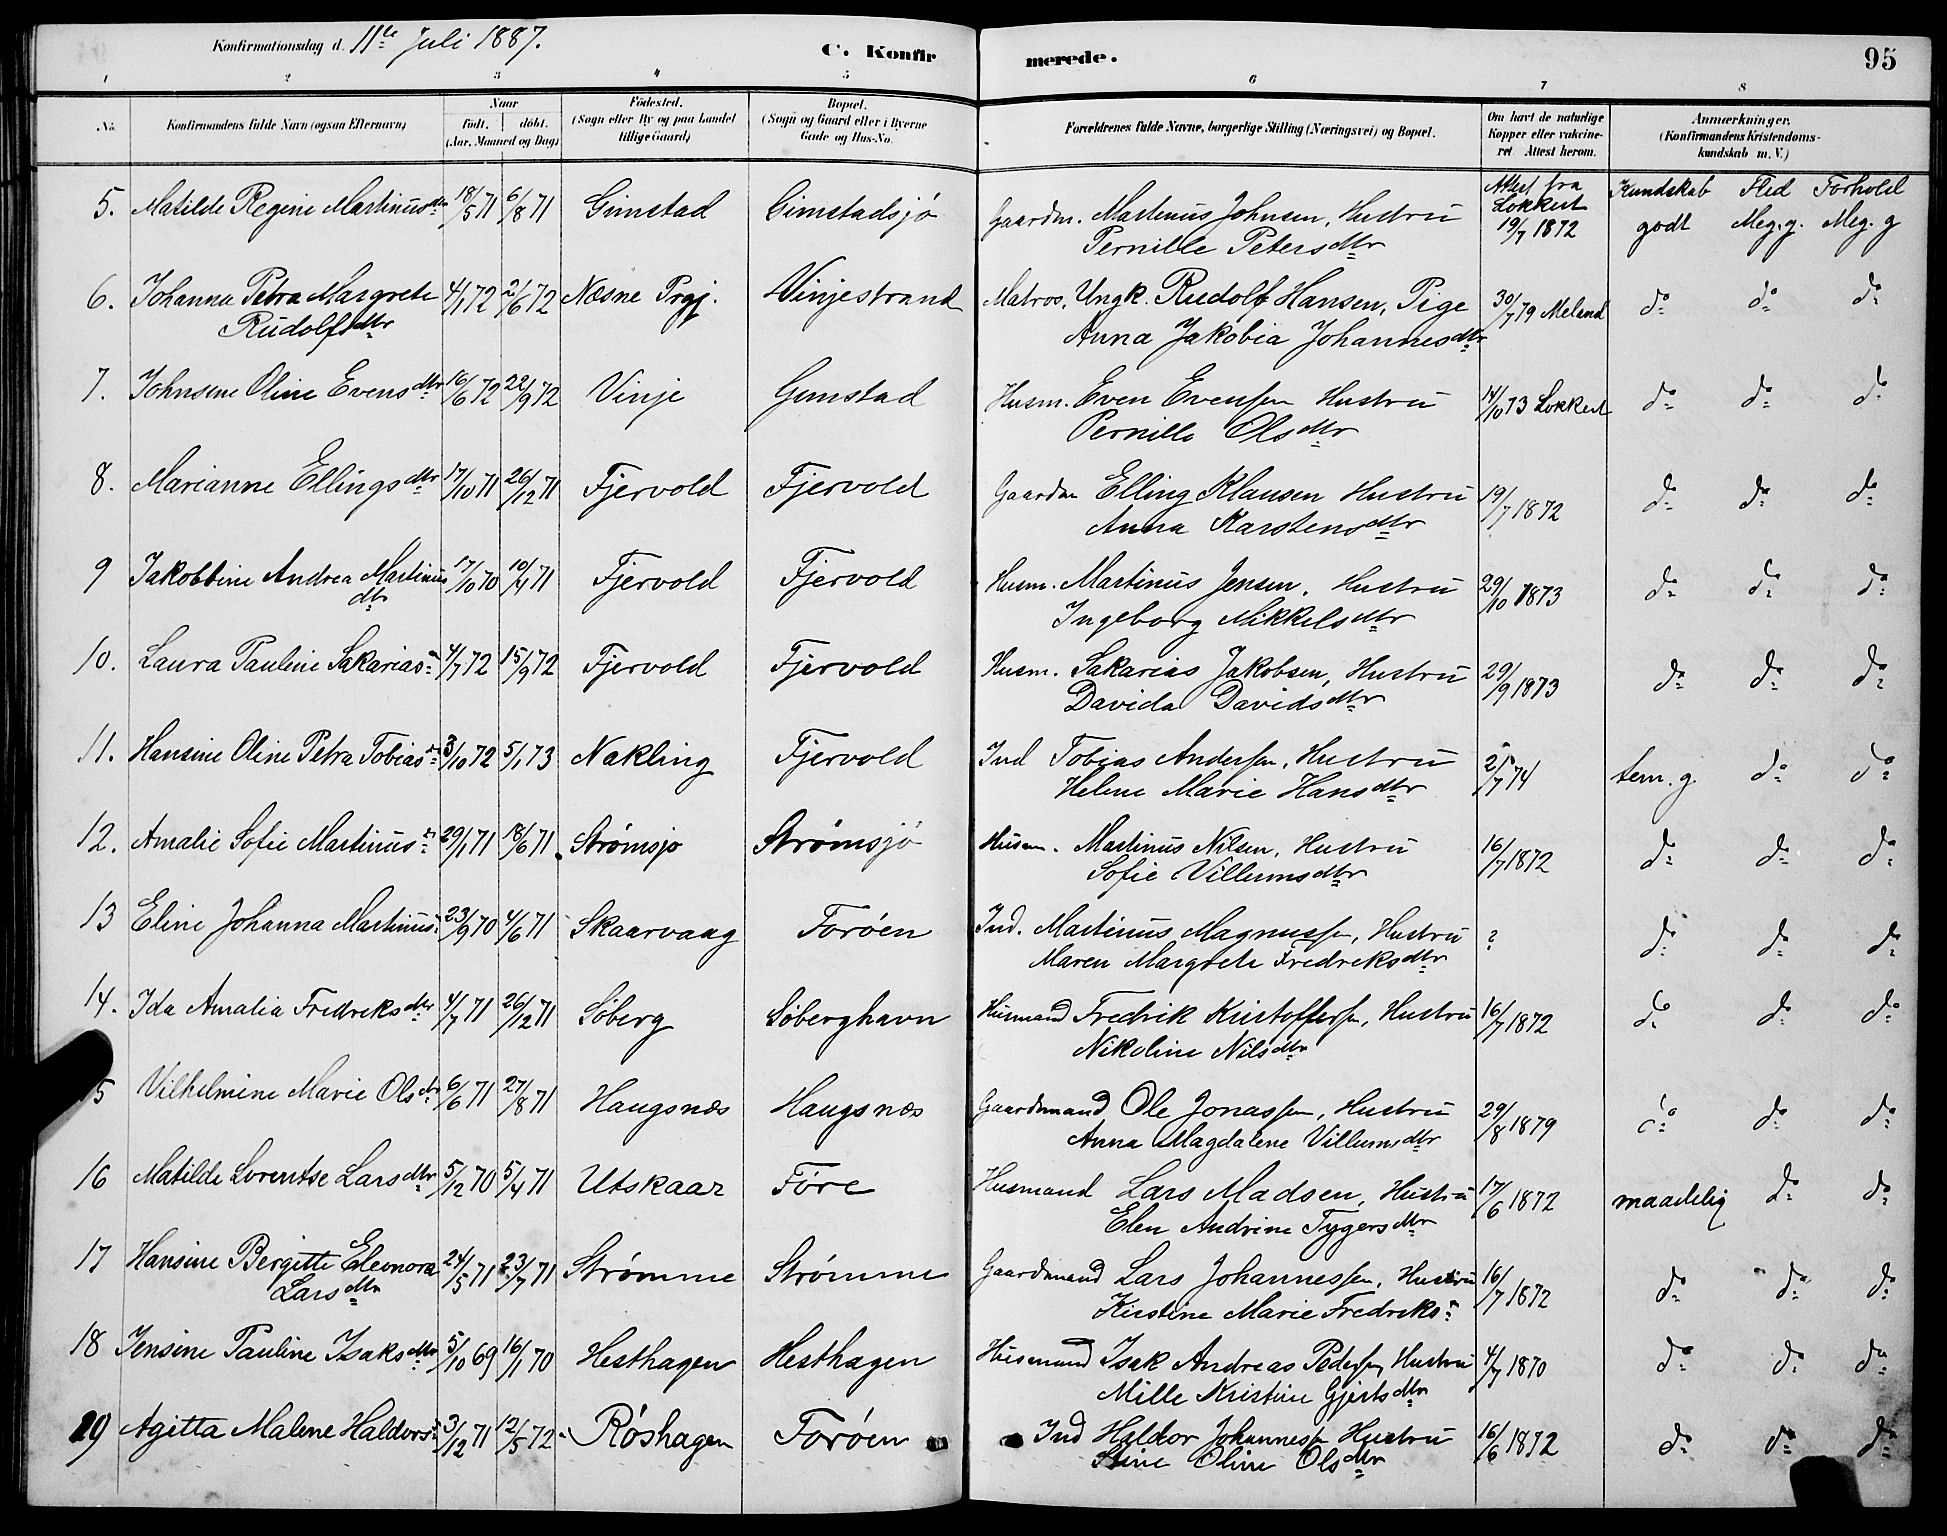 Konfirmationsdag d. 11te Juli 1887.
C. Konfirmerede.
95
1 2 3 4 5 6 7 8
No. Konfirmandens fulde Navn (ogsaa Efternavn) Naar født. döbt. (Aar, Maaned og Dag) Födested. (Sogn eller By og paa Landet tillige Gaard) Bopæl. (Sogn og Gaard eller i Byerne Gade og Hus-No. Forældrenes fulde Navne, borgerlige Stilling (Næringsvei) og Bopæl. Om havt de naturlige Kopper eller vakcineret. Attest herom. Anmærkninger. (Konfirmandens Kristendomskundskab m. V.)
5. Matilde Regine Martinusdtr 18/5 71 6/8 71 Gimstad Gimstadsjö Gaardm. Martinus Johnsen, Hustru Attest fra Lokkert Kundskab Flid Forhold
Pernille Petersdtr 19/7 1872 godt Meg. g. Meg. g
6. Johanna Petra Margrete 4/1 72 2/6 72 Næsne Prgj. Vinjestrand Matros, Ungk. Rudolf Hansen, Pige 30/7 79 Meland do do do
Rudolfsdtr Anna Jakobia Johannesdtr
7. Johnsene Oline Evensdtr 16/6 72 22/9 72 Vinje Gimstad Husm. Even Evensen Hustru 14/10 73 Lokkert do do do
Pernille Olsdtr
8. Marianne Ellingsdtr 17/10 71 26/12 71 Fjervold Fjervold Gaardm Elling Klausen Hustru 19/7 1872 do do do
Anna Karstensdtr
9 Jakobbine Andrea Martinus 17/10 70 10/4 71 Fjervold Fjervold Husm. Martinus Jensen, Hustru 29/10 1873 do do do
dtr Ingeborg Mikkelsdtr
10. Laura Pauline Sakarias 4/7 72 15/9 72 Fjervold Fjervold Husm. Sakarias Jakobsen, Hustru 29/9 1873 do do do
Davida Davidsdtr
11. Hansine Oline Petra Tobias 3/10 72 5/1 73 Nakling Fjervold Ind Tobias Andersen, Hustru 2/7 74 tem. g. do do
Helene Marie Hansdtr
12. Amalie Sofie Martinus 29/1 71 18/6 71 Strömsjo Strömsjö Husm. Martinus Nilsen, Hustru 16/7 1872 do do do
Sofie Villumsdtr
13 Eline Johanna Martinus 23/9 70 4/6 71 Skaarvaag Foröen Ind. Martinus Magnussen, Hustru ? do do do
Maren Margrete Fredreksdtr
14. Ida Amalia Fredreksdtr 4/7 71 26/12 71 Söberg Söberghavn Husmand Fredrik Kristoffersen, Hustru 16/7 1872 do do do
Nikoline Nilsdtr
15 Vilhelmine Marie Olsdtr 6/6 71 27/8 71 Haugsnæs Haugsnæs Gaardmand Ole Jonassen, Hustru 29/8 1879 do do do
Anna Magdalene Villumsdtr
16 Matilde Lorentse Larsdtr 5/12 70 5/4 71 Utskaar Före Husmand Lars Madsen, Hustru 17/6 1872 maadelig do do
Elen Andrine Tygersdtr
17 Hansine Bergitte Eleonora 24/5 71 23/7 71 Strömme Strömme Gaardmand Lars Johannessen, Hustru 16/7 1872 do do do
Larsdtr Kirstine Marie Fredreks
18 Jensine Pauline Isaksdtr 5/10 69 16/1 70 Hesthagen Hesthagen Husmand Isak Andreas Pedersen, Hustru 4/7 1870 do do do
Mille Kristine Gjertsdtr
19 Agitta Malene Haldors 3/12 71 12/5 72 Röshagen Foröen Ind Haldor Johannessen Hustru 16/6 1872 do do do
Stine Oline Olsdtr